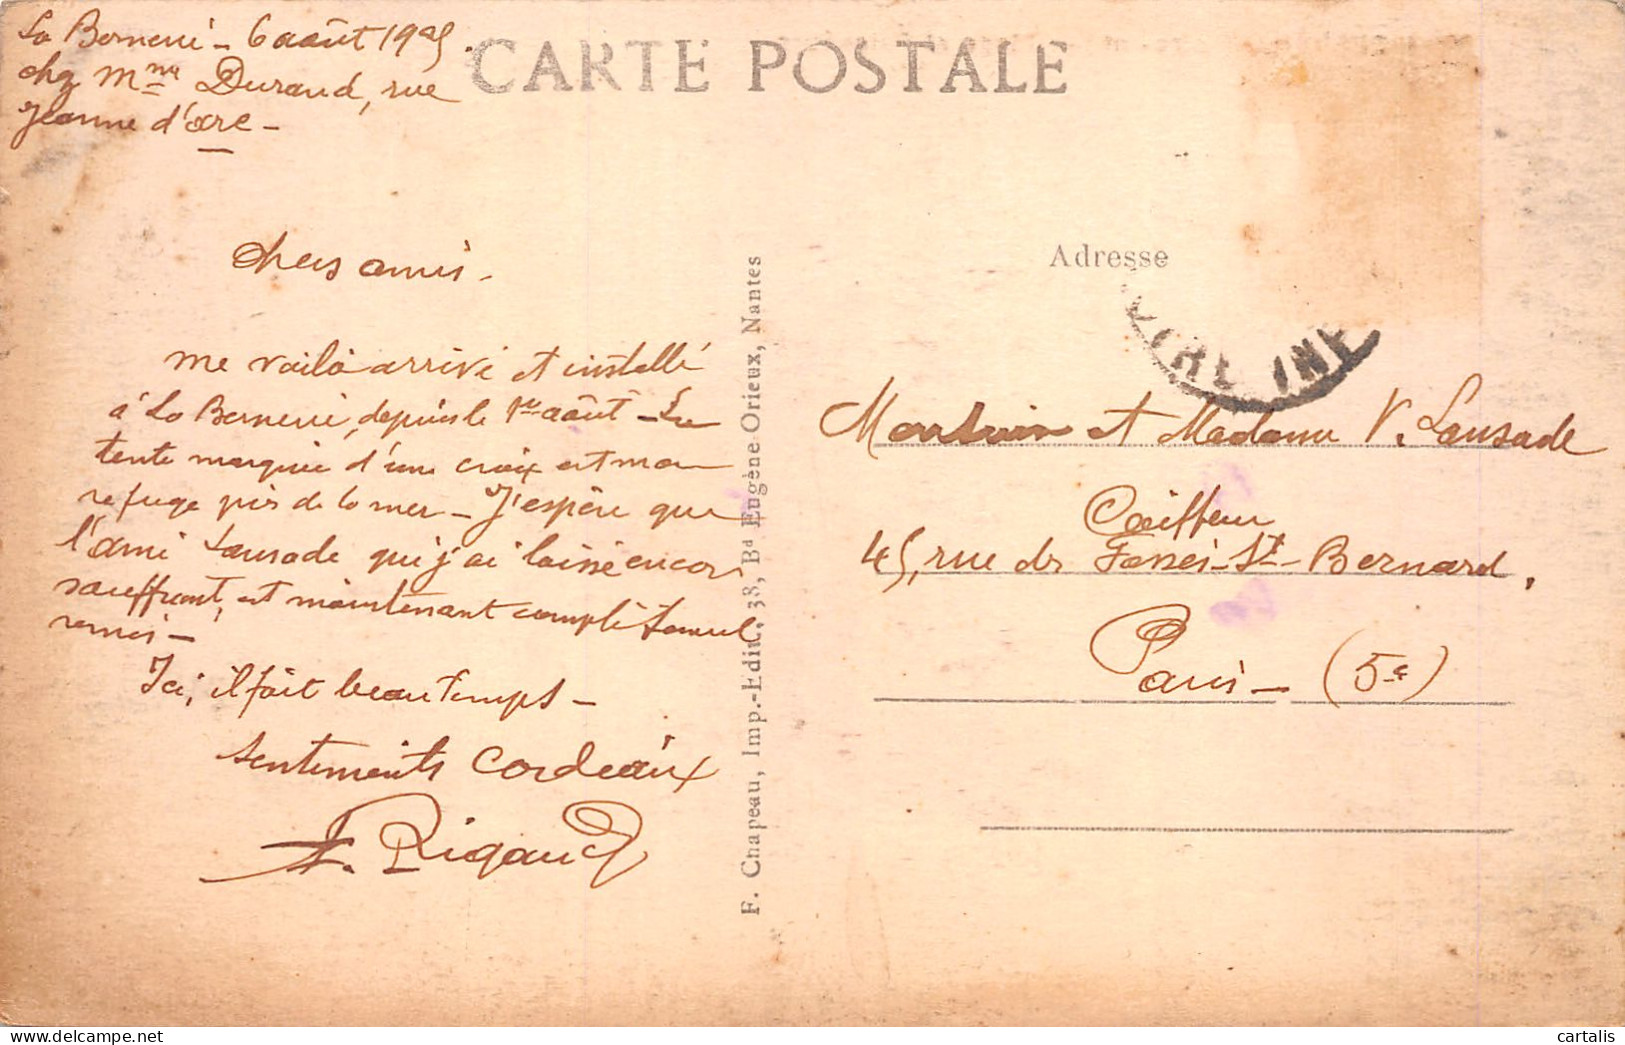 La Bernerie - 6 août 1925.
chez Mme Durand, rue
Jeanne d'Arc -
CARTE POSTALE
Chers amis.
me voilà arrivé et installé
à La Bernerie, depuis le 1er août - La
tente marquée d'une croix est mon
refuge près de la mer - J'espère que
l'ami Lansade que j'ai laissé encor
souffrant, est maintenant complètement
remis -
Ici, il fait beau temps -
Sentiments cordiaux
Rigaud
F. Chapeau, Imp.-Edit., 38, Bd Eugène Orieux, Nantes
Adresse
INF
Monsieur et Madame V. Lansade
Coiffeur
45, rue des Fossés-St-Bernard,
Paris - (5e)
cartalis